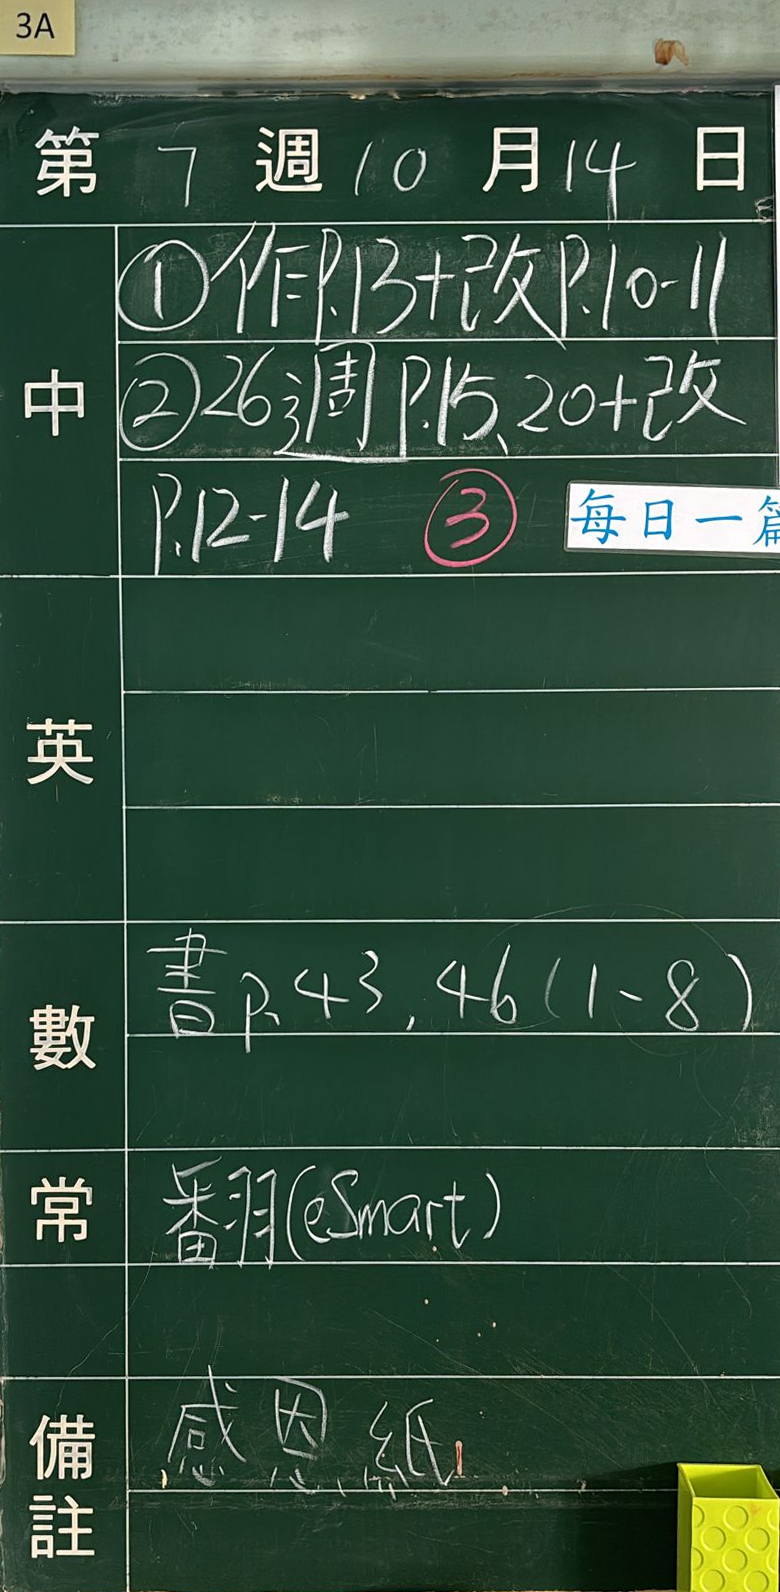 3A
第 7 週 10 月 14 日
中
①作P.13+改P.10-11
②26週P.15、20+改
P.12-14 ③ 每日一篇
英
數
書P.43,46(1-8)
常
翻(eSmart)
備註
感恩紙